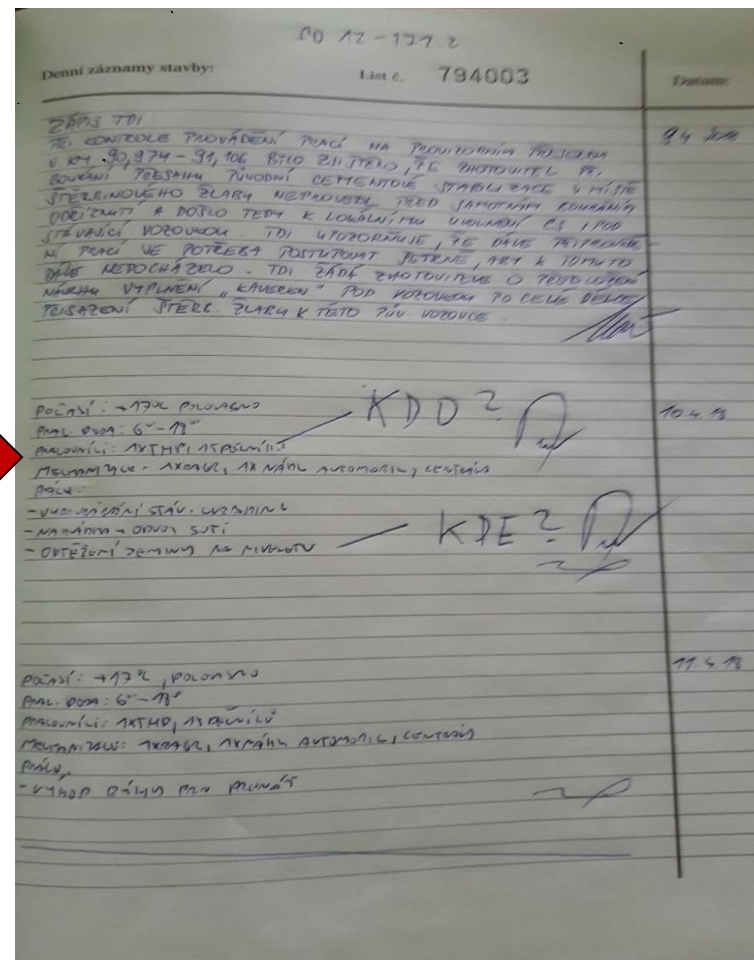 SO 12-171.2
Denní záznamy stavby: List č. 794003 Datum:
ZÁPIS TDI 9.4. 2018
PŘI KONTROLE PROVÁDĚNÍ PRACÍ NA PROVIZORNÍM PŘEJEZDU
V KM 90,974 - 91,106 BYLO ZJIŠTĚNO, ŽE ZHOTOVITEL PŘI
BOURÁNÍ PŘESAHU PŮVODNÍ CEMENTOVÉ STABILIZACE V MÍSTĚ
ŠTĚRBINOVÉHO ŽLABU NEPROVEDL PŘED SAMOTNÝM BOURÁNÍM
ODŘÍZNUTÍ A DOŠLO TEDY K LOKÁLNÍMU UVOLNĚNÍ CS I POD
STÁVAJÍCÍ VOZOVKOU. TDI UPOZORŇUJE, ŽE DÁLE PŘI PROVÁDĚ-
NÍ PRACÍ JE POTŘEBA POSTUPOVAT ŠETRNĚ, ABY K TOMUTO
DÁLE NEDOCHÁZELO. TDI ŽÁDÁ ZHOTOVITELE O PŘEDLOŽENÍ
NÁVRHU VYPLNĚNÍ „KAVEREN" POD VOZOVKOU PO CELÉ DÉLCE
PŘISAZENÍ ŠTĚRB. ŽLABU K TÉTO PŮV. VOZOVCE.
POČASÍ: +17°C POLOJASNO 10.4.18
KDO?
PRAC. DOBA: 6°° - 18°°
PRACOVNÍCI: 1XTHP, 15 DĚLNÍKŮ
MECHANIZACE: 1XBAGR, 1X NÁKL AUTOMOBIL, CENTRÁLA
PRÁCE:
- STÁV.
- NAKLÁDKA + ODVOZ SUTI
- ODTĚŽENÍ ZEMINY NA NIVELETU KDE?
POČASÍ: +17°C, POLOJASNO 11.4.18
PRAC. DOBA: 6°° - 18°°
PRACOVNÍCI: 1XTHP, DĚLNÍKŮ
MECHANIZACE: 1XBAGR, 1XNÁKL AUTOMOBIL, CENTRÁLA
PRÁCE:
- VÝKOP RÝHY PRO